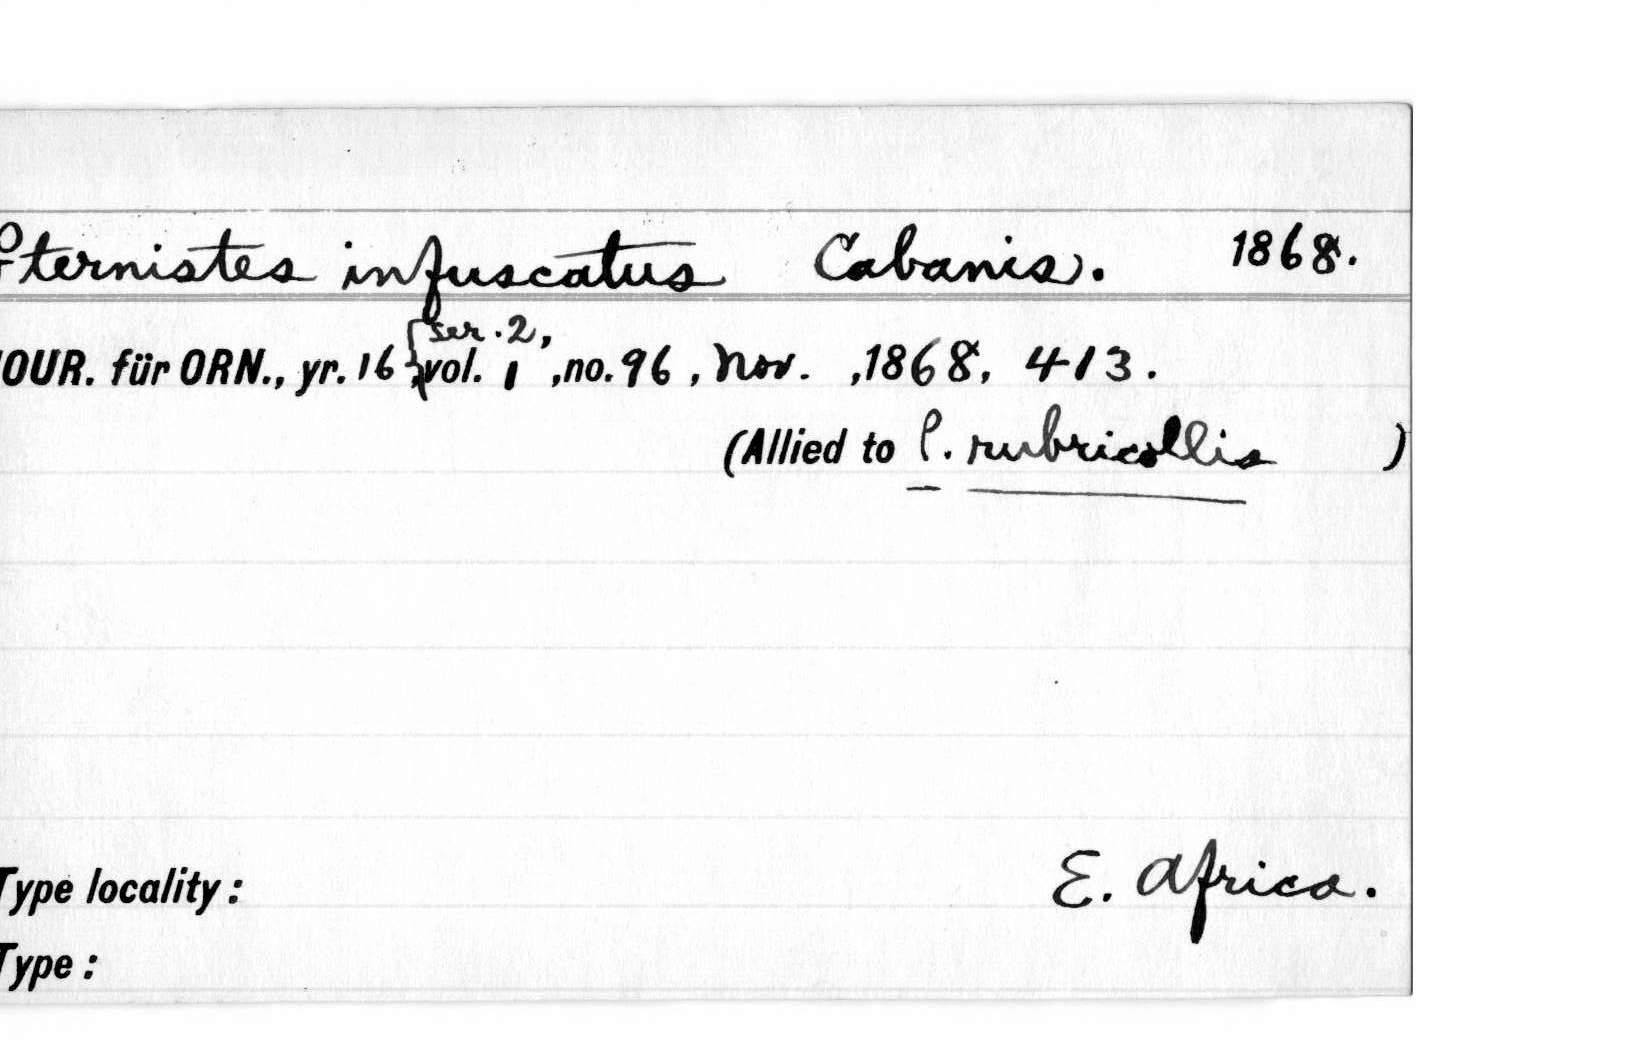 Pternistes infuscatus Cabanis. 1868.
ser. 2,
OUR. für ORN., yr. 16, vol. 1, no. 96, Nov. ,1868, 413.
(Allied to P. rubricollis )
Type locality: E. Africa.
Type: